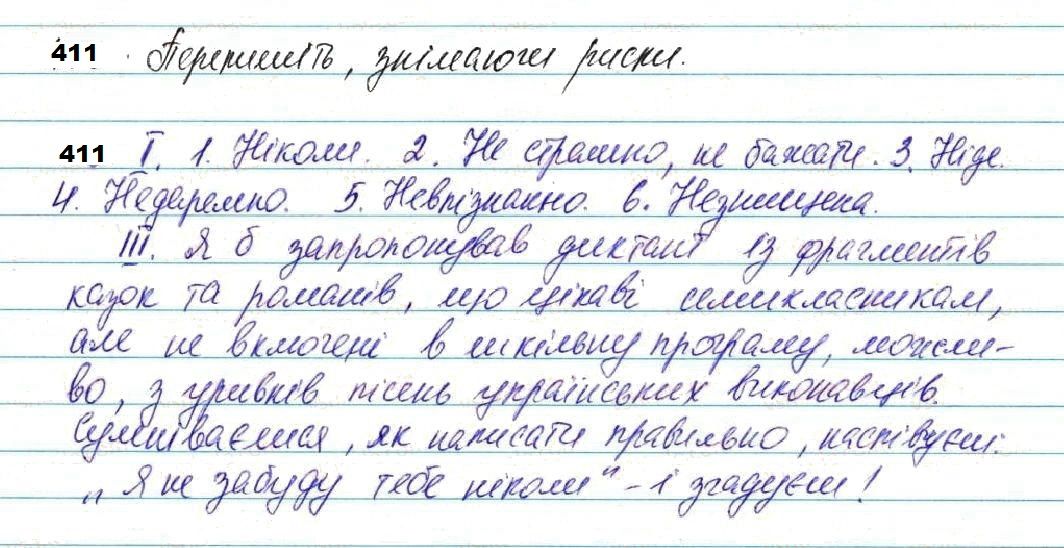 411 . Перепишіть, знімаючи риски.
411 І. 1. Ніколи. 2. Не страшно, не бажати. 3. Ніде.
4. Недаремно. 5. Невпізнанно. 6. Незнищена.
ІІІ. Я б запропонував диктант із фрагментів
казок та романів, що цікаві семикласникам,
але не включені в шкільну програму, можли-
во, з уривків пісень українських виконавців.
Сумніваєшся, як написати правильно, наспівуєш:
„Я не забуду тебе ніколи" - і згадуєш!